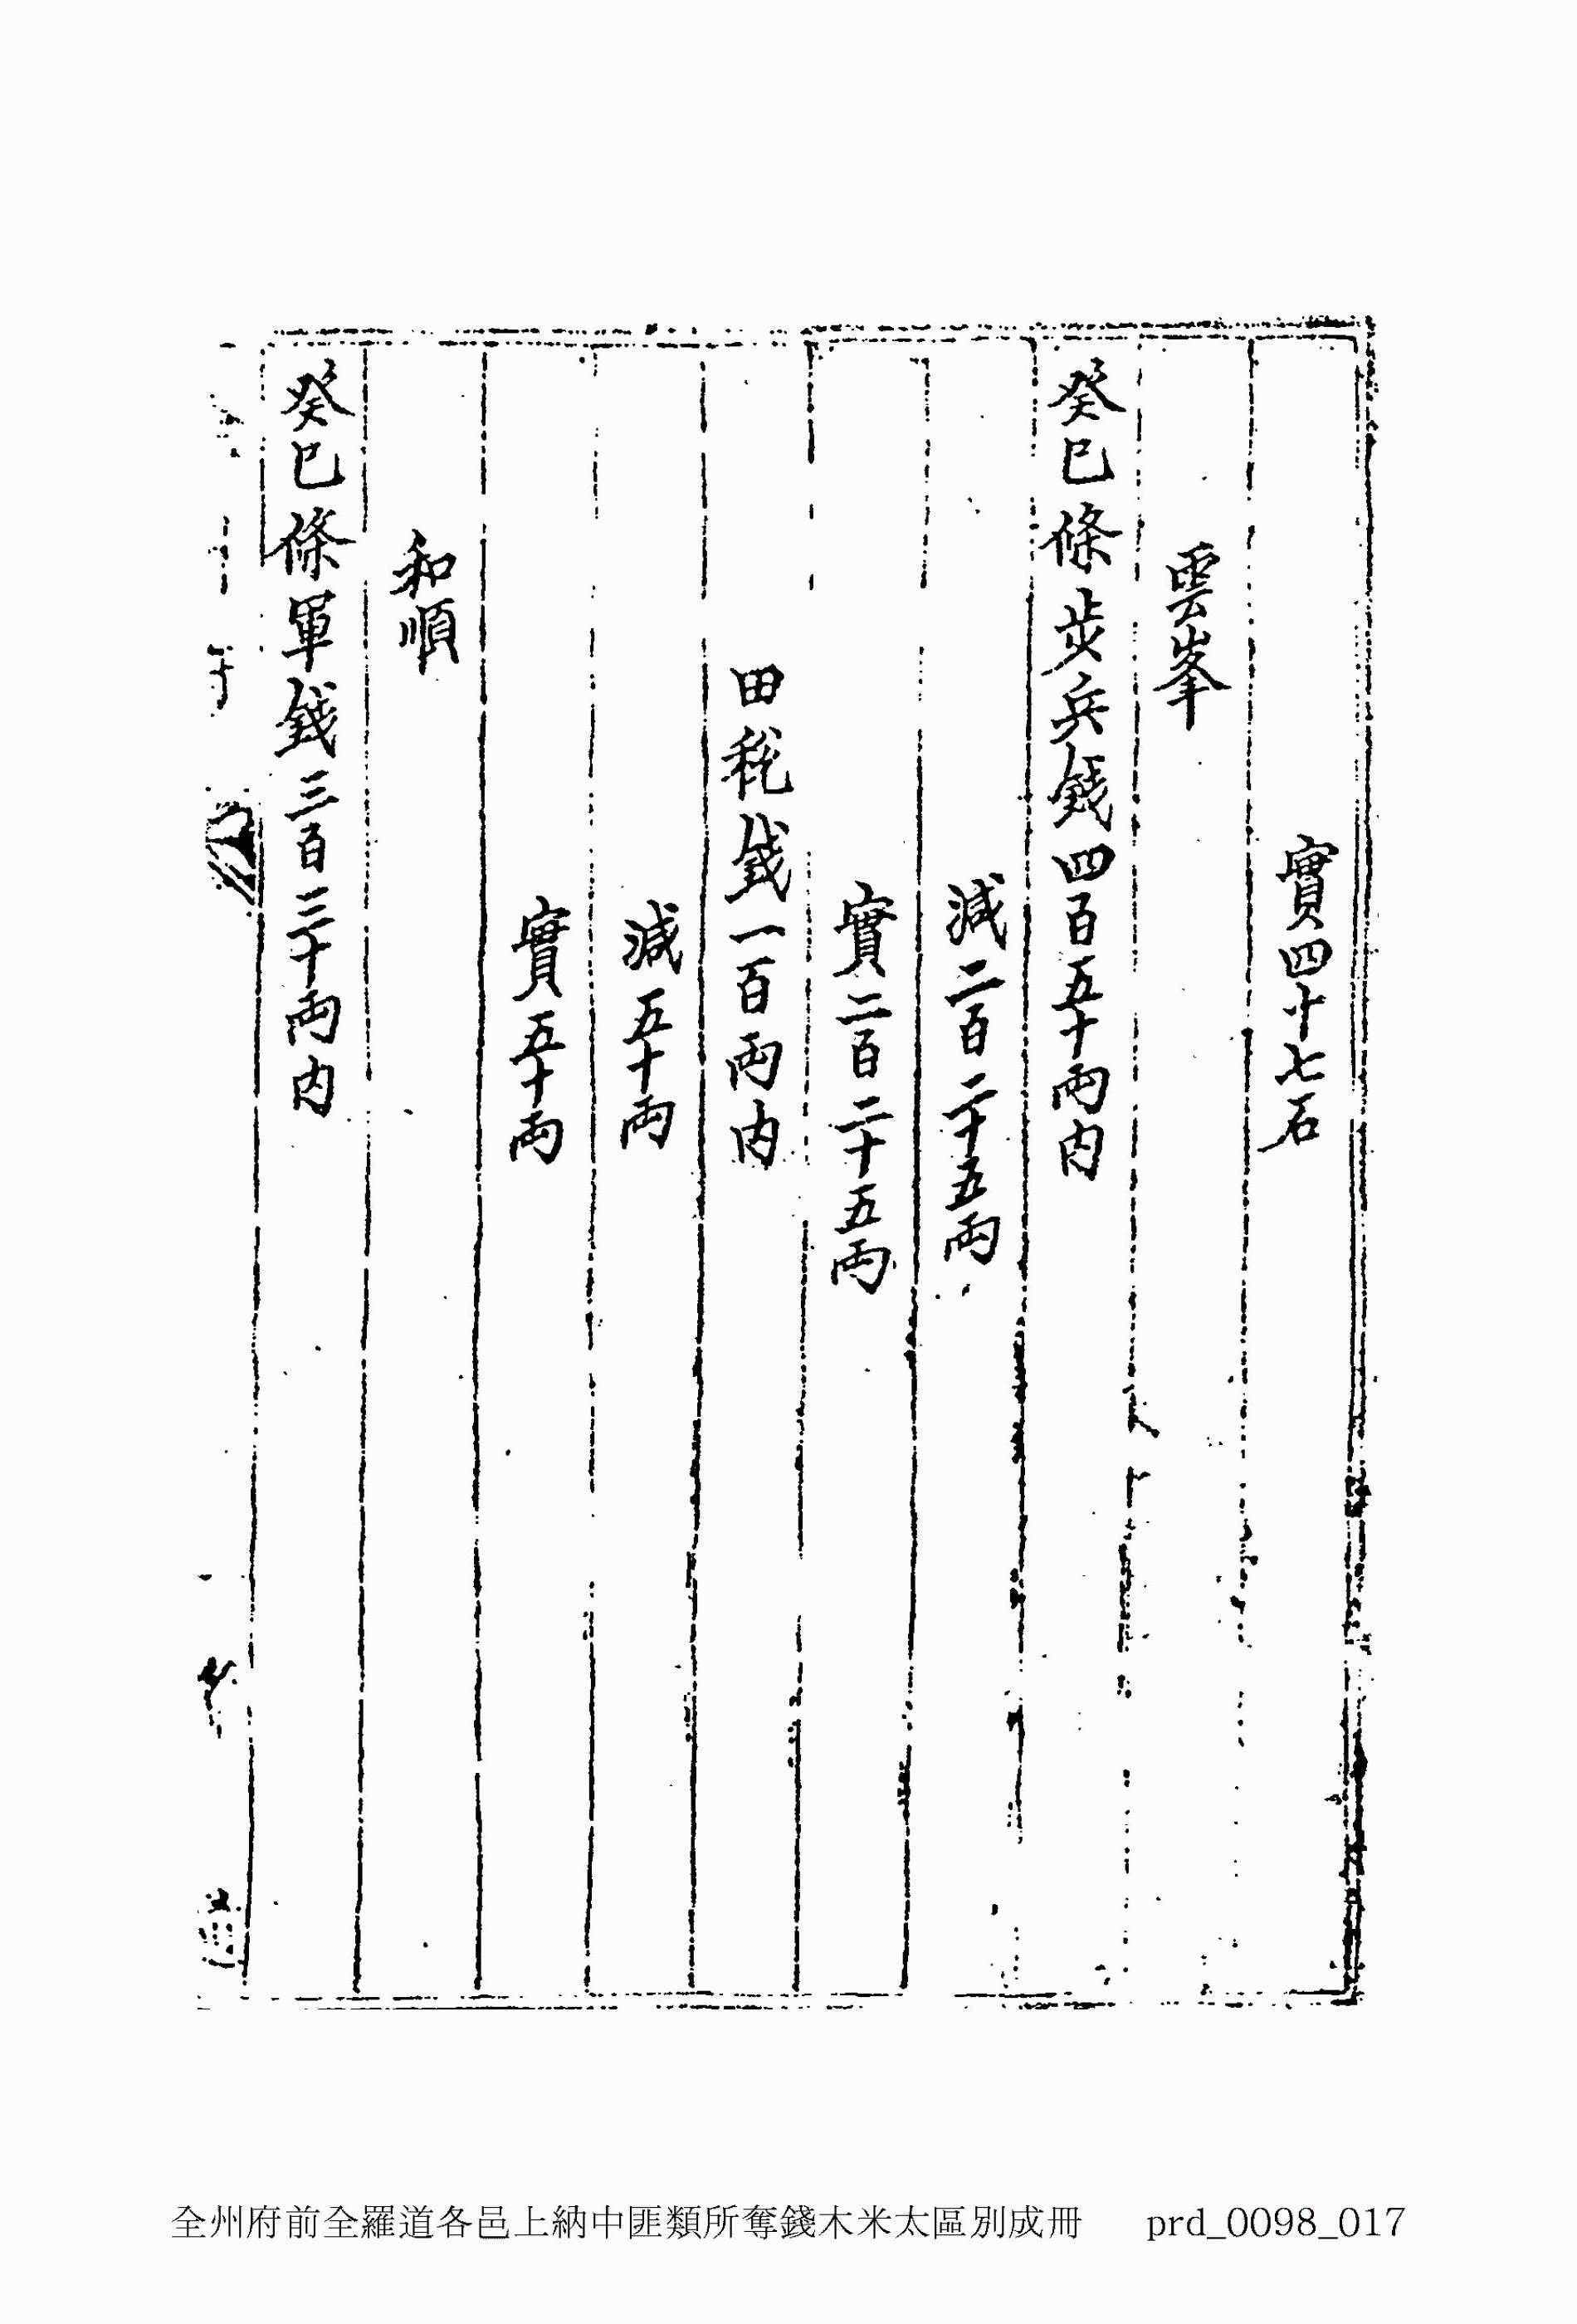 實四十七石
雲峯
癸巳條步兵錢四百五十兩内
減二百二十五兩
實二百二十五兩
田稅錢一百兩内
減五十兩
實五十兩
和順
癸巳條軍錢三百三十兩内
全州府前全羅道各邑上納中匪類所奪錢木米太區別成冊 prd_0098_017